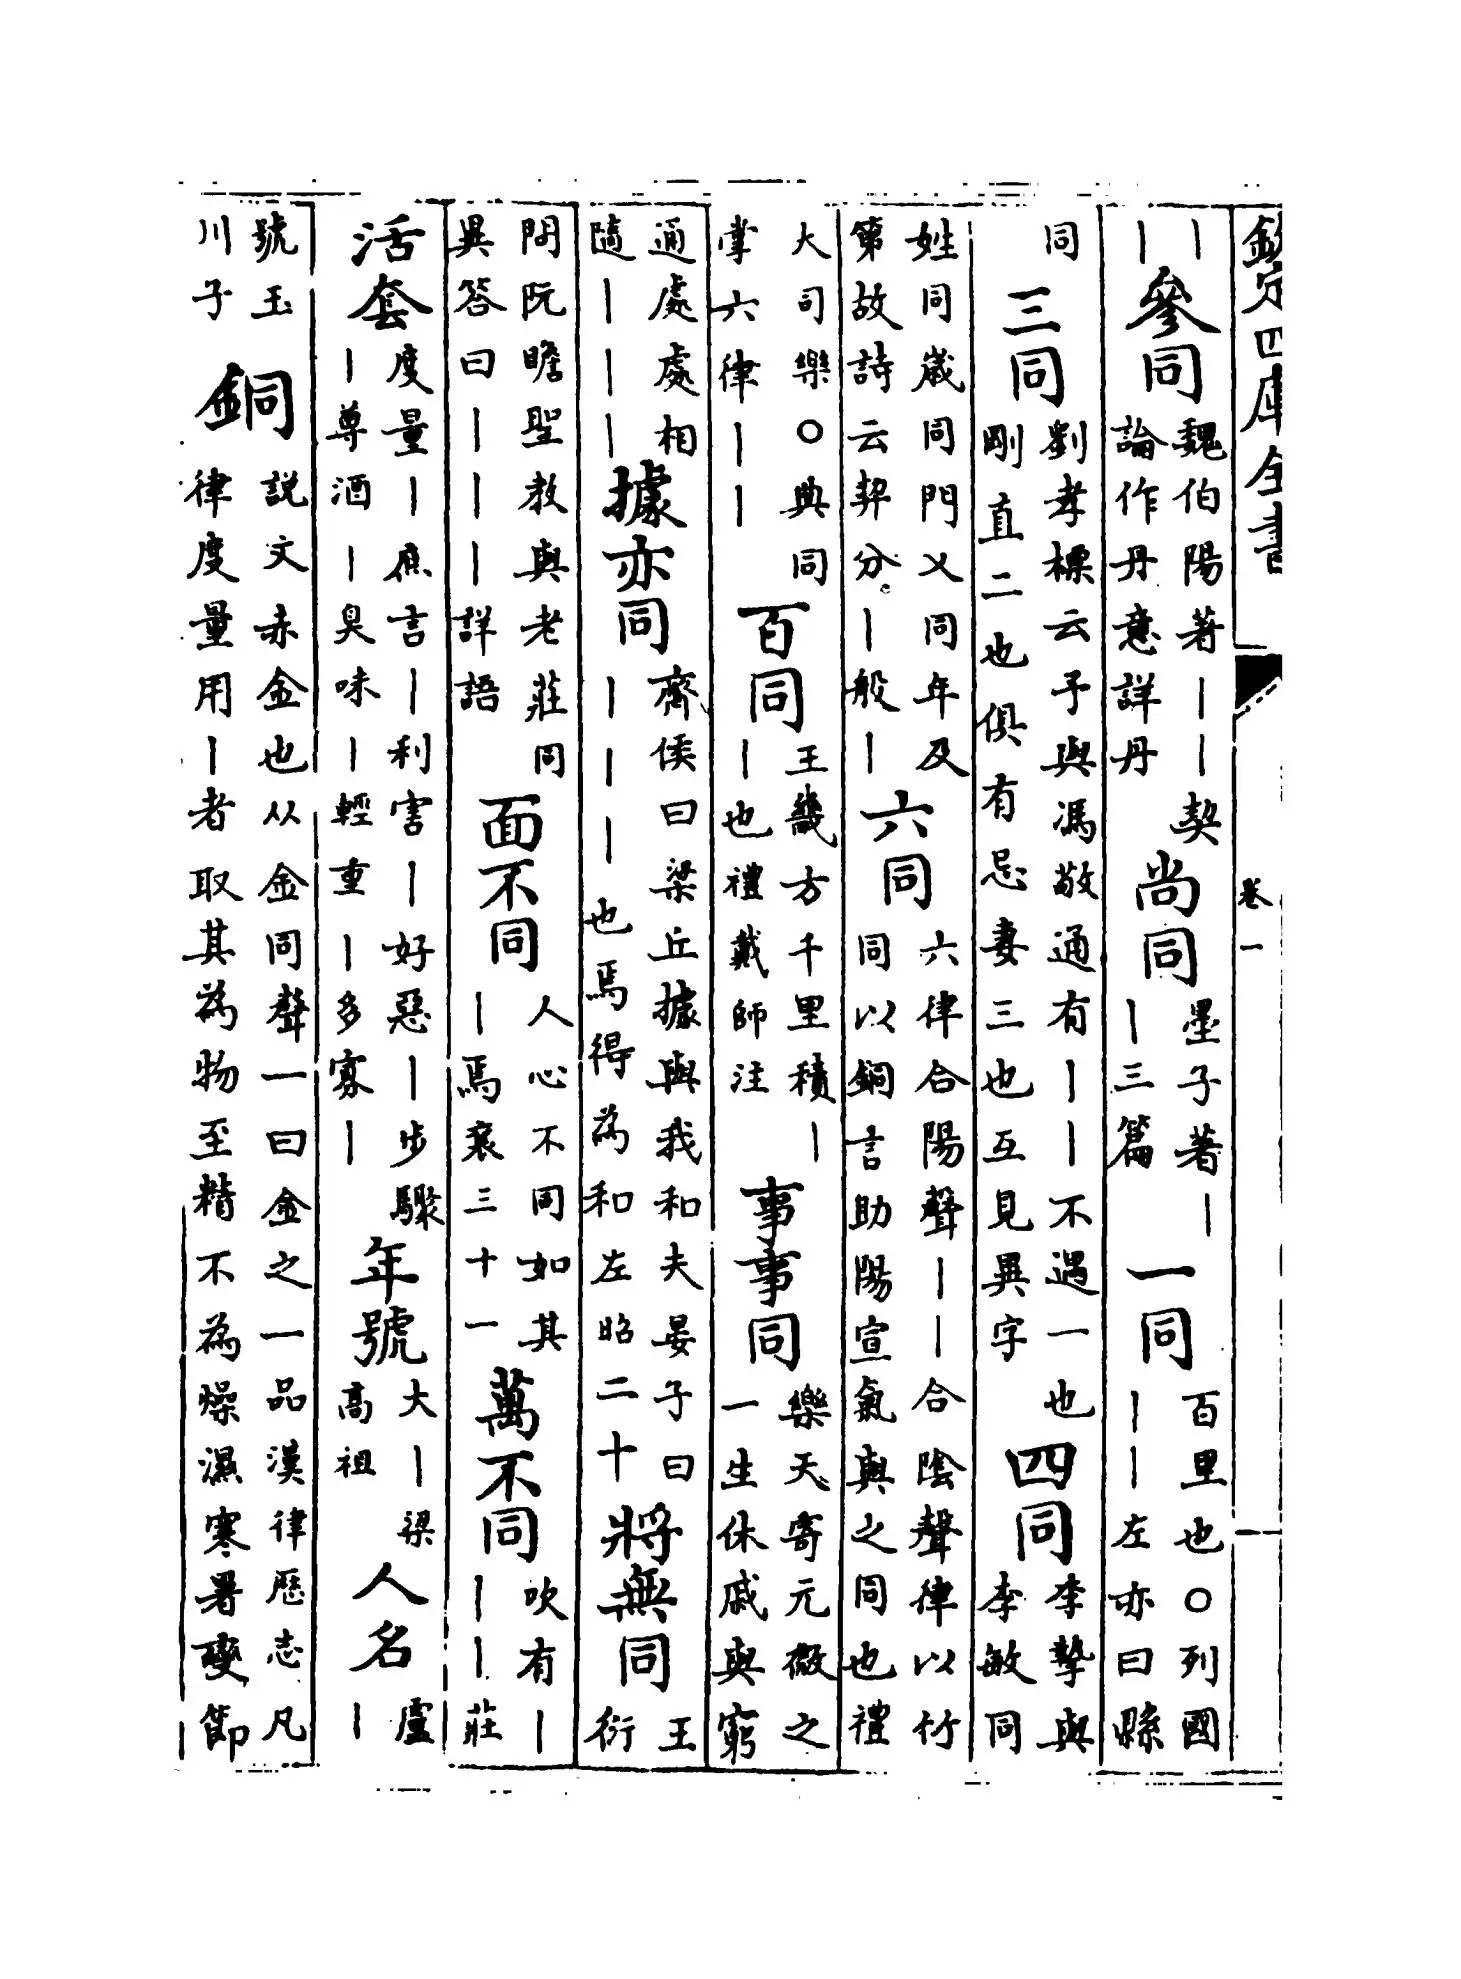 欽定四庫全書 卷一
丨丨參同魏伯陽著丨丨契論作丹意詳丹尚同墨子著丨丨三篇一同百里也○列國丨丨左亦曰縣
同三同劉孝標云予與馮敬通有丨丨不遇一也剛直二也俱有忌妻三也互見異字四同李摯與李敏同
姓同歲同門乂同年及第故詩云契分丨般丨六同六律合陽聲丨丨合陰聲律以竹同以銅言助陽宣氣與之同也禮
大司樂○典同掌六律丨丨百同王畿方千里積丨丨也禮戴師注事事同樂天寄元微之一生休戚與窮
通處處相隨丨丨丨據亦同齊侯曰梁丘據與我和夫晏子曰丨丨丨也焉得為和左昭二十將無同王衍
問阮瞻聖教與老莊同異答曰丨丨丨詳語面不同人心不同如其丨焉襄三十一萬不同吹有丨丨丨莊
活套度量丨應言丨利害丨好惡丨步驟丨尊酒丨臭味丨輕重丨多寡丨年號大丨梁高祖人名盧丨
號玉川子銅說文赤金也从金同聲一曰金之一品漢律歷志凡律度量用丨者取其為物至精不為燥濕寒暑變節